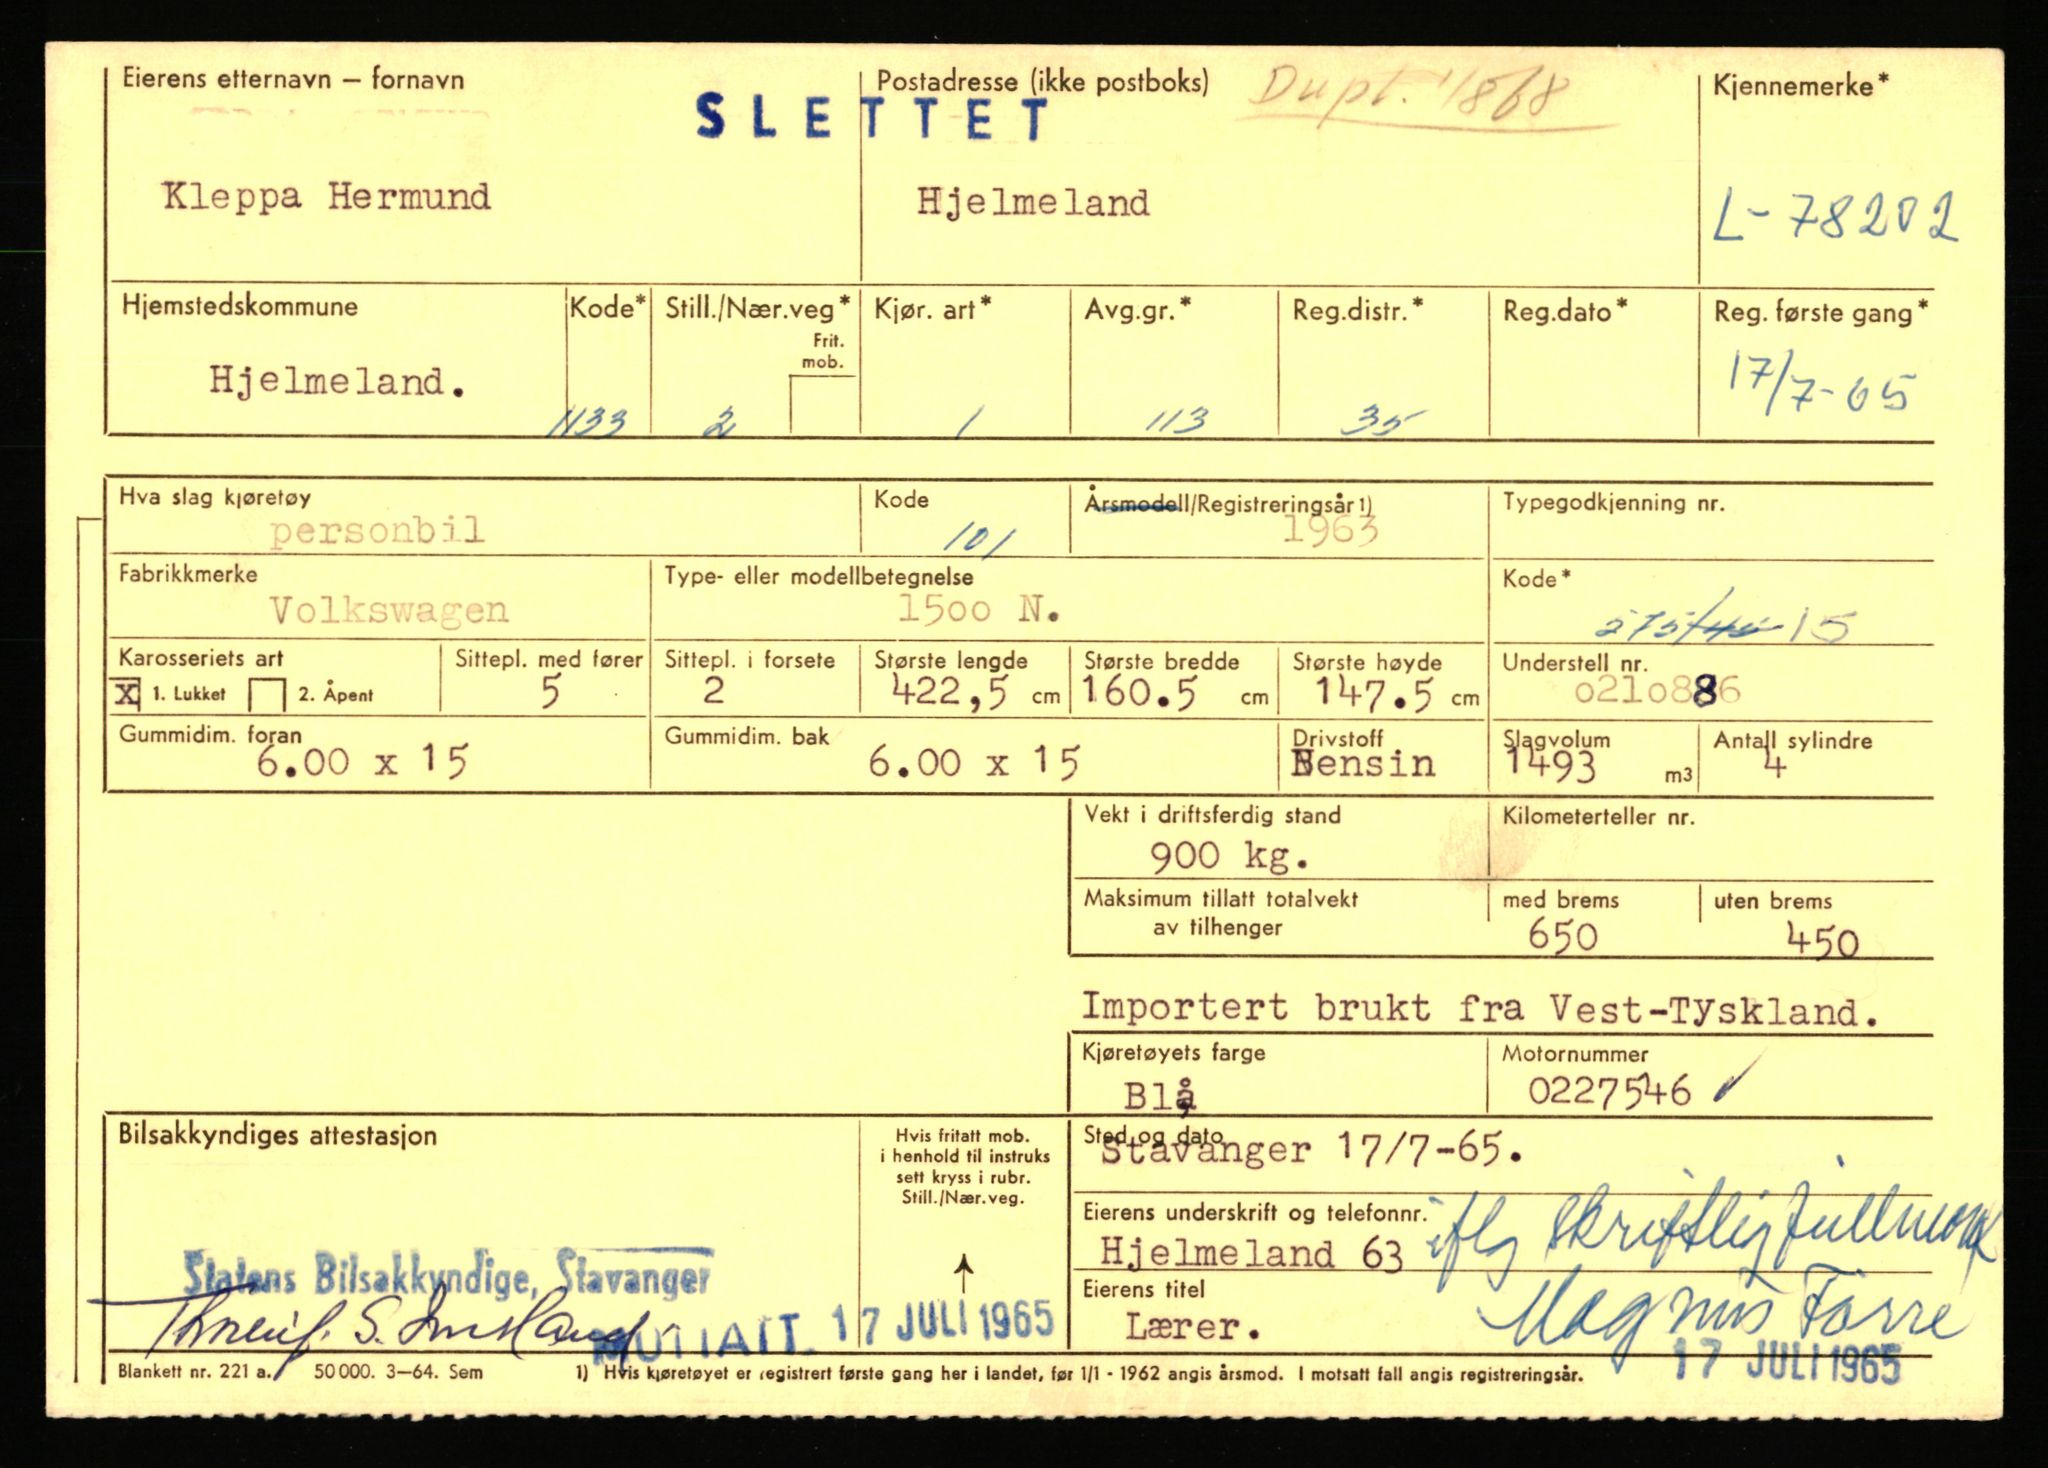 Eierens etternavn – fornavn
Postadresse (ikke postboks)
Dupl. 1/8 68
Kjennemerke*
SLETTET
Kleppa Hermund
Hjelmeland
L-78202
Hjemstedskommune
Kode*
Still./Nær.veg*
Kjør. art*
Avg.gr.*
Reg.distr.*
Reg.dato*
Reg. første gang*
Frit.
mob.
Hjelmeland.
1133
2
1
113
35
17/7-65
Hva slag kjøretøy
Kode
Årsmodell/Registreringsår 1)
Typegodkjenning nr.
personbil
101
1963
Fabrikkmerke
Type- eller modellbetegnelse
Kode*
Volkswagen
1500 N.
15
Karosseriets art
Sittepl. med fører
Sittepl. i forsete
Største lengde
Største bredde
Største høyde
Understell nr.
X 1. Lukket
2. Åpent
5
2
422,5 cm
160.5 cm
147.5 cm
0210886
Gummidim. foran
Gummidim. bak
Drivstoff
Slagvolum
Antall sylindre
6.00 x 15
6.00 x 15
Bensin
1493 m3
4
Vekt i driftsferdig stand
Kilometerteller nr.
900 kg.
Maksimum tillatt totalvekt
av tilhenger
med brems
uten brems
650
450
Importert brukt fra Vest-Tyskland.
Kjøretøyets farge
Motornummer
Blå
0227546
Bilsakkyndiges attestasjon
Hvis fritatt mob.
i henhold til instruks
sett kryss i rubr.
Still./Nær.veg.
Sted og dato
Stavanger 17/7-65.
Eierens underskrift og telefonnr.
iflg skriftlig fullmakt
Hjelmeland 63
Statens Bilsakkyndige, Stavanger
Eierens titel
Magnus Førre
Lærer.
MOTTATT. 17 JULI 1965
17 JULI 1965
Blankett nr. 221 a.
50 000. 3–64. Sem
1) Hvis kjøretøyet er registrert første gang her i landet, før 1/1 - 1962 angis årsmod. I motsatt fall angis registreringsår.